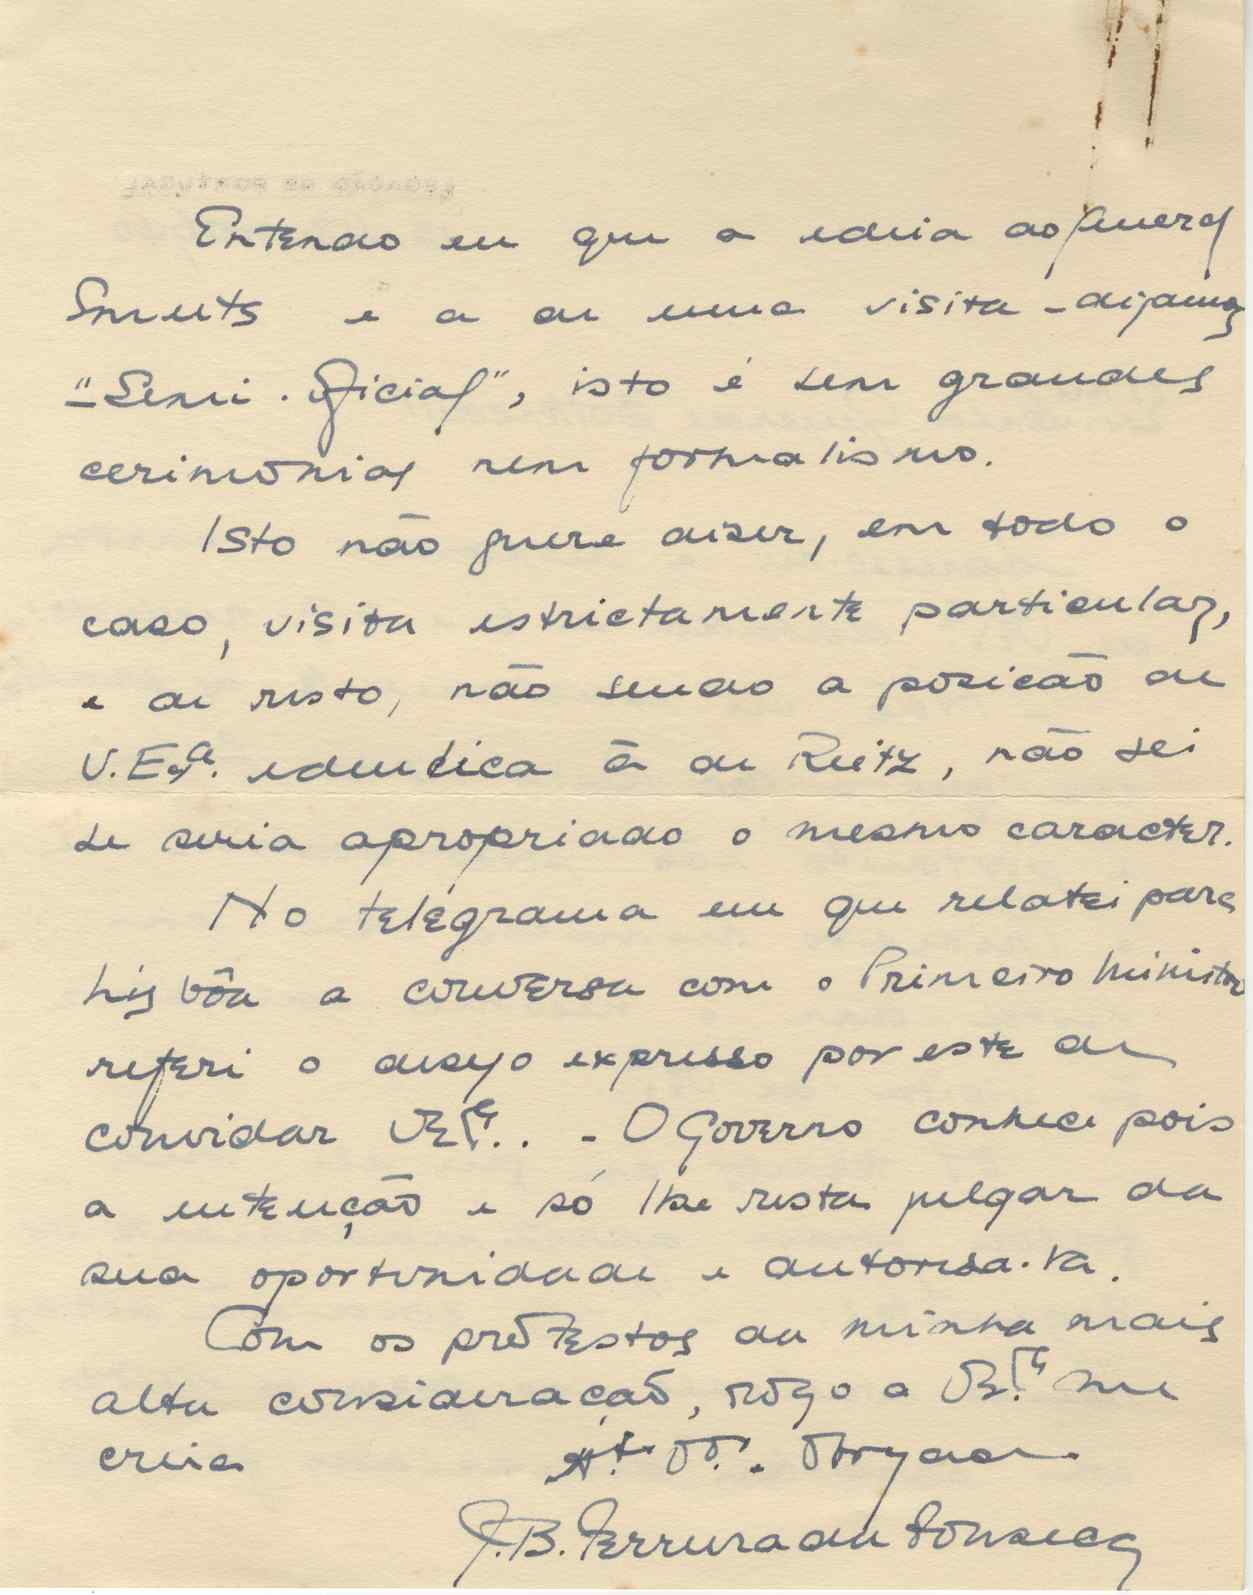 Entendo eu que a ideia do General
Smuts e a de uma visita - digamos
"Semi-Oficial", isto é sem grandes
cerimonias nem formalismo.
Isto não quere diser, em todo o
caso, visita estrictamente particular,
e de resto, não sendo a posicão de
V. Exª. identica á de Reitz, não sei
se seria apropriado o mesmo caracter.
No telégrama em que relatei para
Lisbôa a conversa com o Primeiro Ministro
referi o desejo expresso por este de
convidar VExª.. - O Governo conhece pois
a intenção e só lhe resta julgar da
sua oportunidade e autorisa-la.
Com os protestos da minha mais
alta consideração, rogo a VExª me
creia Att.º Vº. Obrgado.
J. B. Ferreira da Fonseca